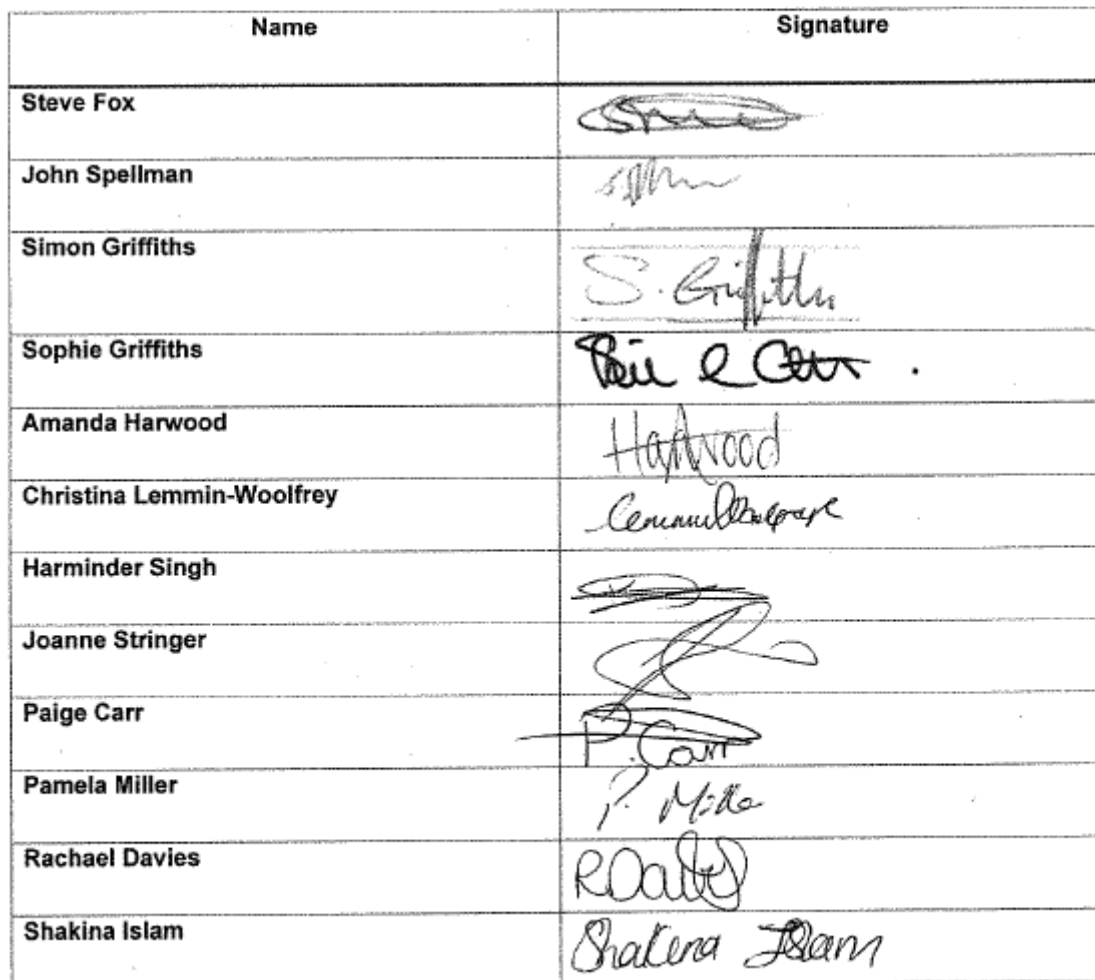 Name Signature
Steve Fox
John Spellman
Simon Griffiths S. Griffiths
Sophie Griffiths
Amanda Harwood Harwood
Christina Lemmin-Woolfrey
Harminder Singh
Joanne Stringer
Paige Carr P. Carr
Pamela Miller P. Mille
Rachael Davies R Davies
Shakina Islam Shakina Islam